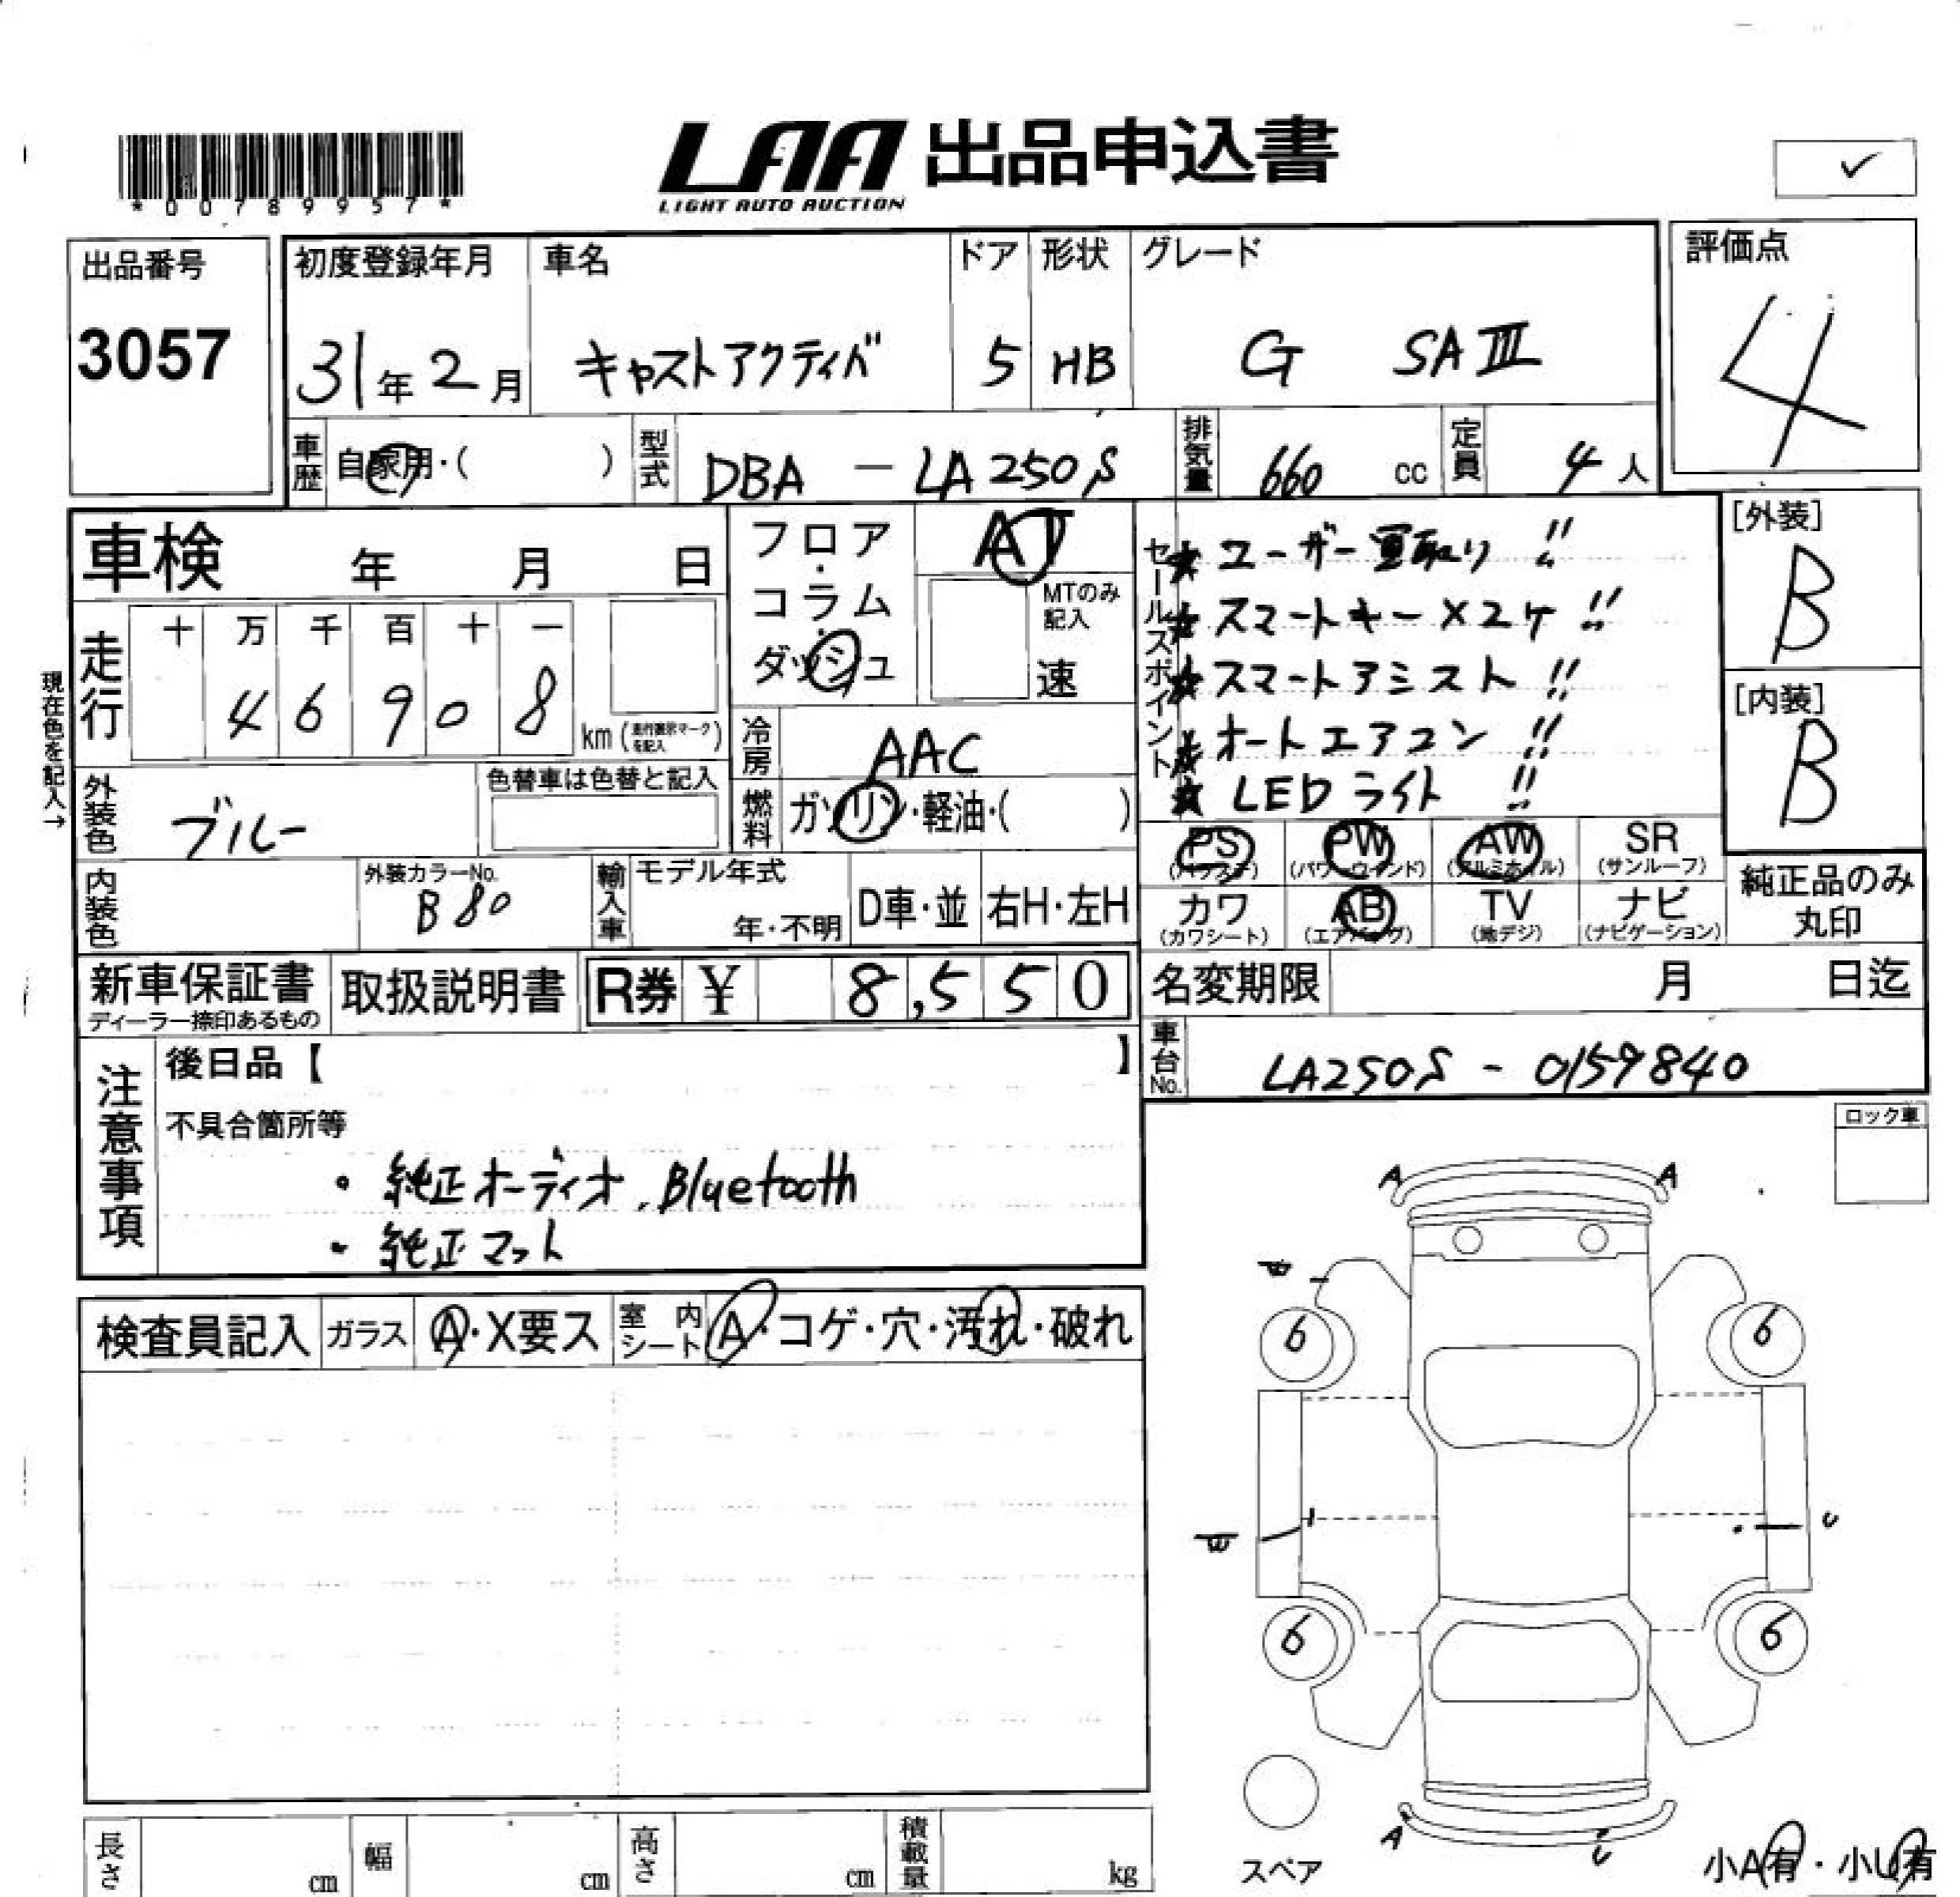 LAA 出品申込書
LIGHT AUTO AUCTION
*00789957*
✓
出品番号
3057
初度登録年月 車名 ドア 形状 グレード
31年2月 キャストアクティバ 5 HB G SAⅢ
評価点
4
車歴 自家用・( ) 型式 DBA - LA250S 排気量 660 cc 定員 4人
車検 年 月 日
フロア・コラム・ダッシュ
AT
MTのみ記入
速
走行
十 万 千 百 十 一
4 6 9 0 8
km(走行表示マークを記入)
現在色を記入→
冷房 AAC
外装色 ブルー
色替車は色替と記入
燃料 ガソリン・軽油・( )
セールスポイント
★ユーザー買取り!!
★スマートキー×2ケ!!
★スマートアシスト!!
★オートエアコン!!
★LEDライト!!
[外装]
B
[内装]
B
PS PW AW SR
(パワステ) (パワーウィンド) (アルミホイル) (サンルーフ)
カワ AB TV ナビ
(カワシート) (エアバッグ) (地デジ) (ナビゲーション)
純正品のみ
丸印
内装色
外装カラーNo.
B80
輸入車 モデル年式
年・不明 D車・並 右H・左H
新車保証書
ディーラー捺印あるもの
取扱説明書
R券 ¥ 8,550
名変期限 月 日迄
車台No. LA250S - 0159840
注意事項
後日品【 】
不具合箇所等
・純正オーディオ、Bluetooth
・純正マット
ロック車
検査員記入 ガラス A・X要ス 室内シート A・コゲ・穴・汚れ・破れ
A A
W
6 6
W U
6 6
A U
スペア
小A有・小U有
長さ cm 幅 cm 高さ cm 積載量 kg